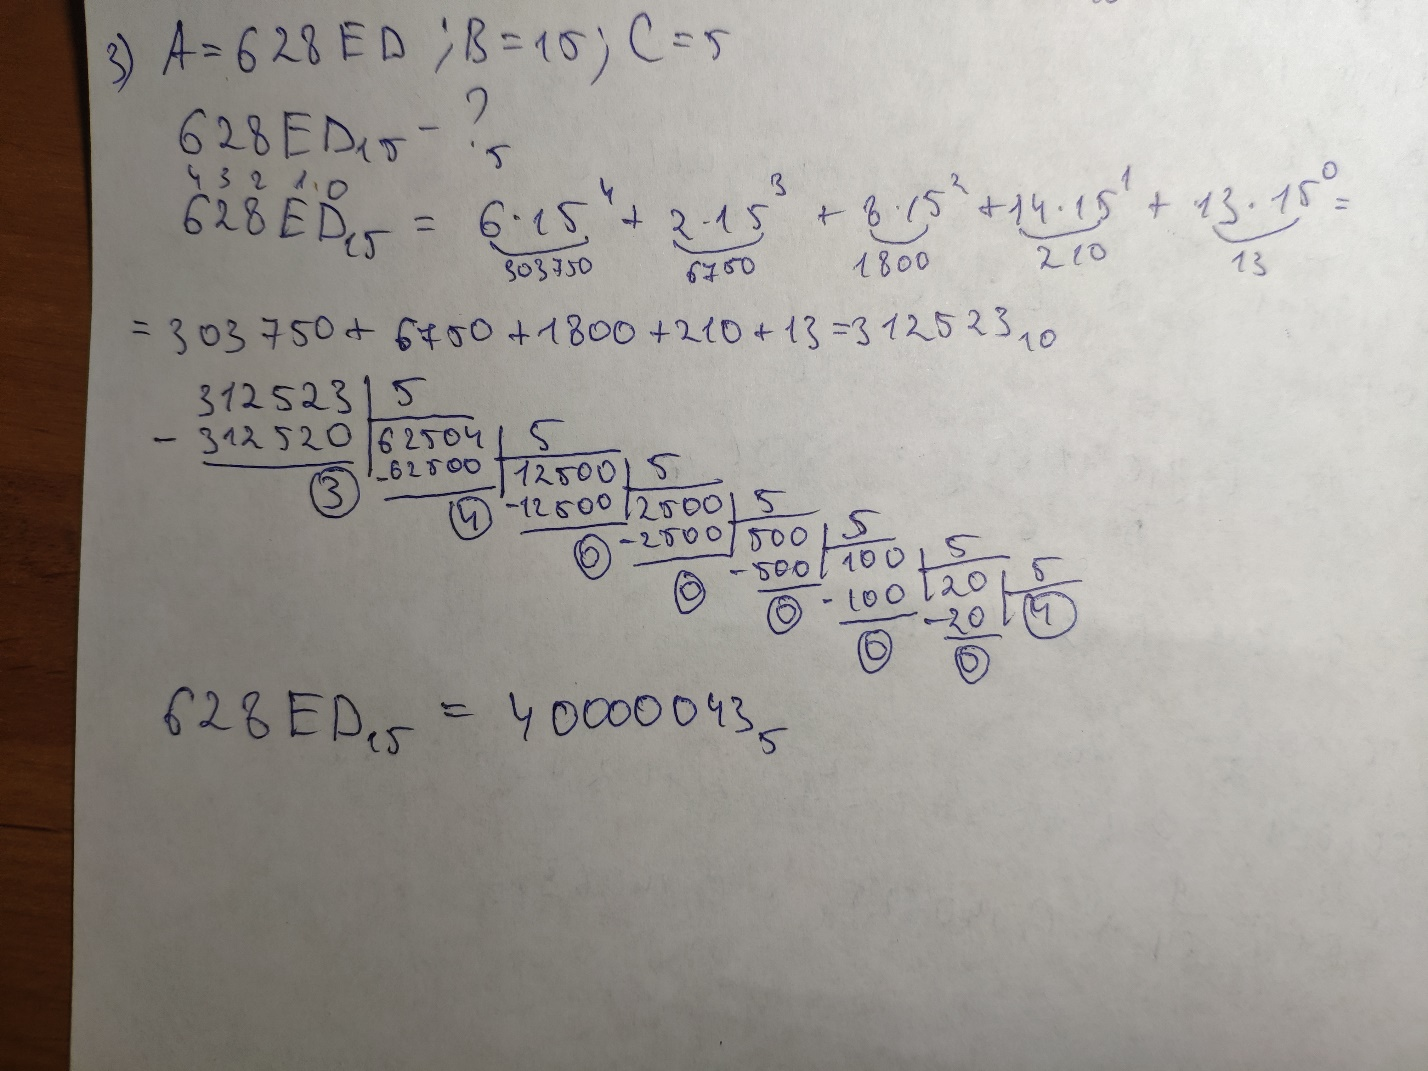 3) A=628ED; B=15; C=5
628ED₁₅ - ?₅
4 3 2 1 0
628ED₁₅ = 6·15⁴ + 2·15³ + 8·15² + 14·15¹ + 13·15⁰ =
303750 6750 1800 210 13
= 303750 + 6750 + 1800 + 210 + 13 = 312523₁₀
312523 | 5
- 312520 | 62504 | 5
3 -62500 | 12500 | 5
4 -12500 | 2500 | 5
0 -2500 | 500 | 5
0 -500 | 100 | 5
0 -100 | 20 | 5
0 -20 | 4
0
628ED₁₅ = 40000043₅